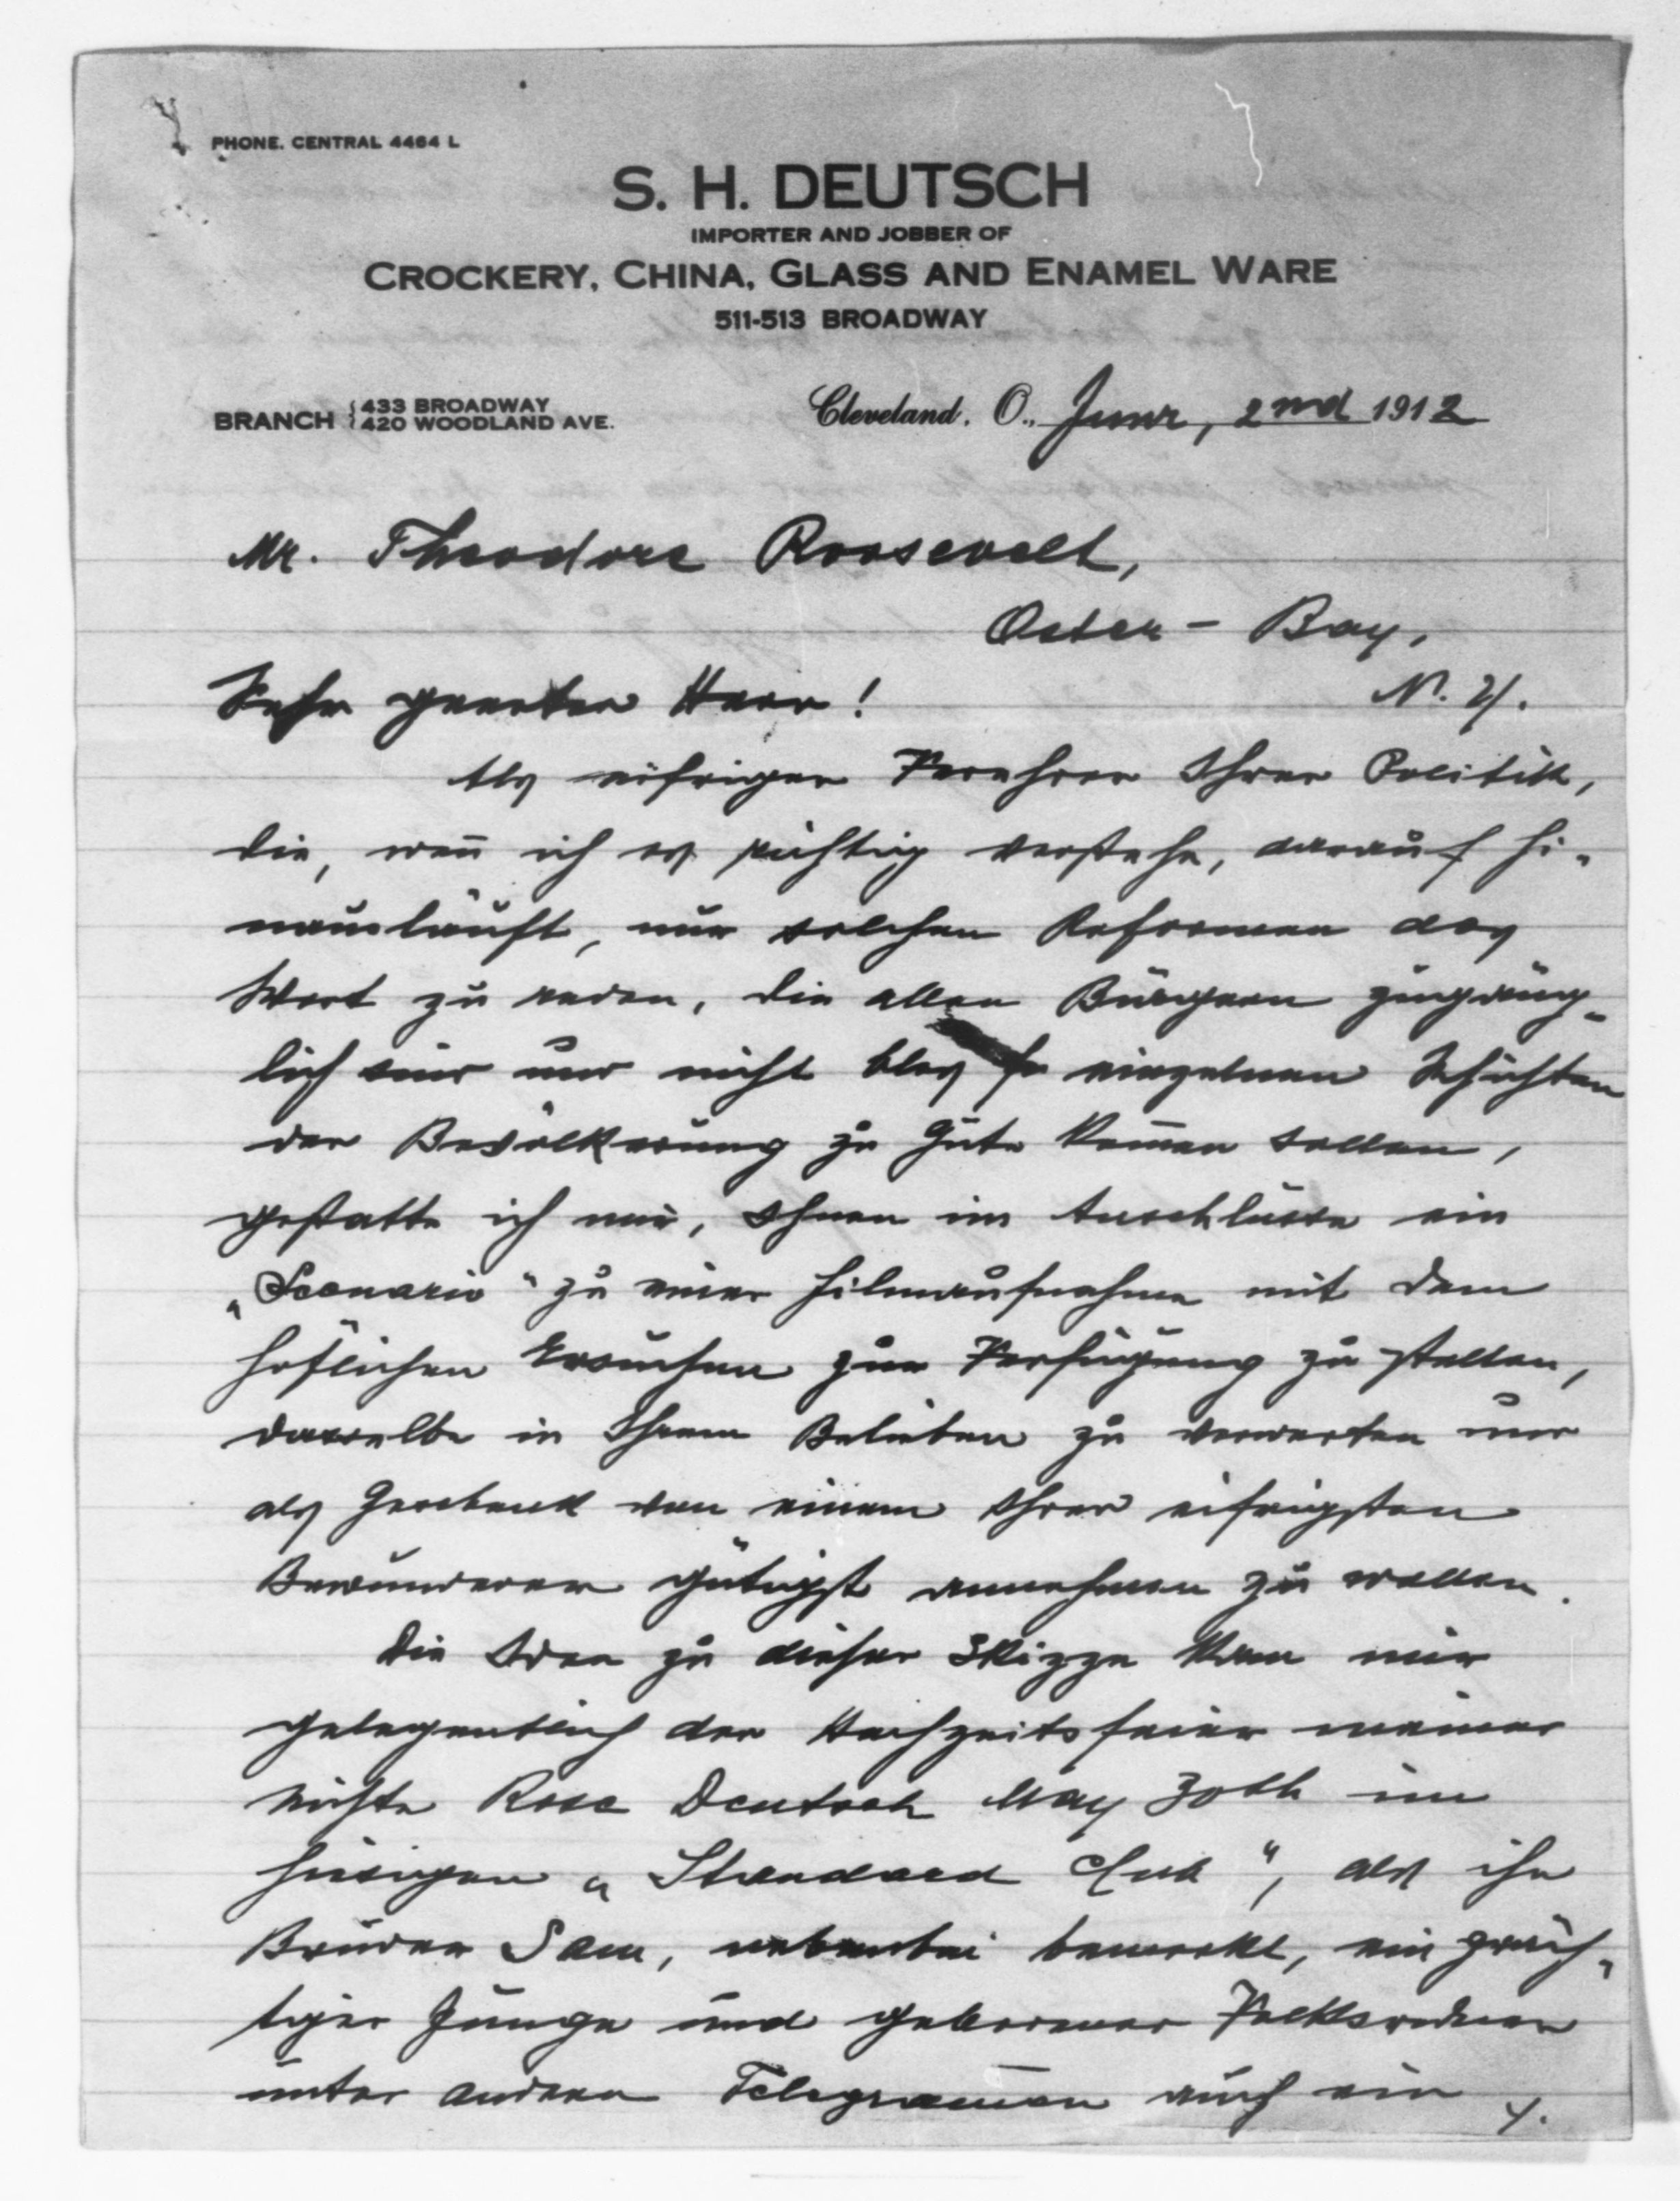 PHONE. CENTRAL 4464 L
S. H. DEUTSCH
IMPORTER AND JOBBER OF
CROCKERY, CHINA, GLASS AND ENAMEL WARE
511-513 BROADWAY
BRANCH { 433 BROADWAY
420 WOODLAND AVE.
Cleveland, O., June, 2nd 1912
Mr. Theodore Roosevelt,
Oster - Bay,
N. Y.
Sehr geerter Herr!
Als eifriger Verehrer Ihrer Politik,
die, weñ ich es richtig verstehe, darauf hi-
nausläuft, nur solchen Reformen das
Wort zu reden, die allen Bürgern zugäng-
lich sind und nicht blos einzelnen Schichten
der Bevölkerung zu Gute kom̄en sollen,
gestatte ich mir, Ihnen im Anschlusse ein
„Scenario“ zu einer Filmaufnahme mit dem
höflichen Ersuchen zur Verfügung zu stellen,
dasselbe in Ihrem Belieben zu verwerten und
als Geschenk von einem Ihrer eifrigsten
Bewunderer gütigst annehmen zu wollen.
Die Idee zu dieser Skizze kam mir
gelegentlich der Hochzeitsfeier meiner
Nichte Rose Deutsch May 30th im
hiesigen „Standard Club“, als ihr
Bruder Sam, nebenbei bemerkt, ein präch-
tiger Junge und geborener Volksredner
unter andern Telegram̄en auch ein